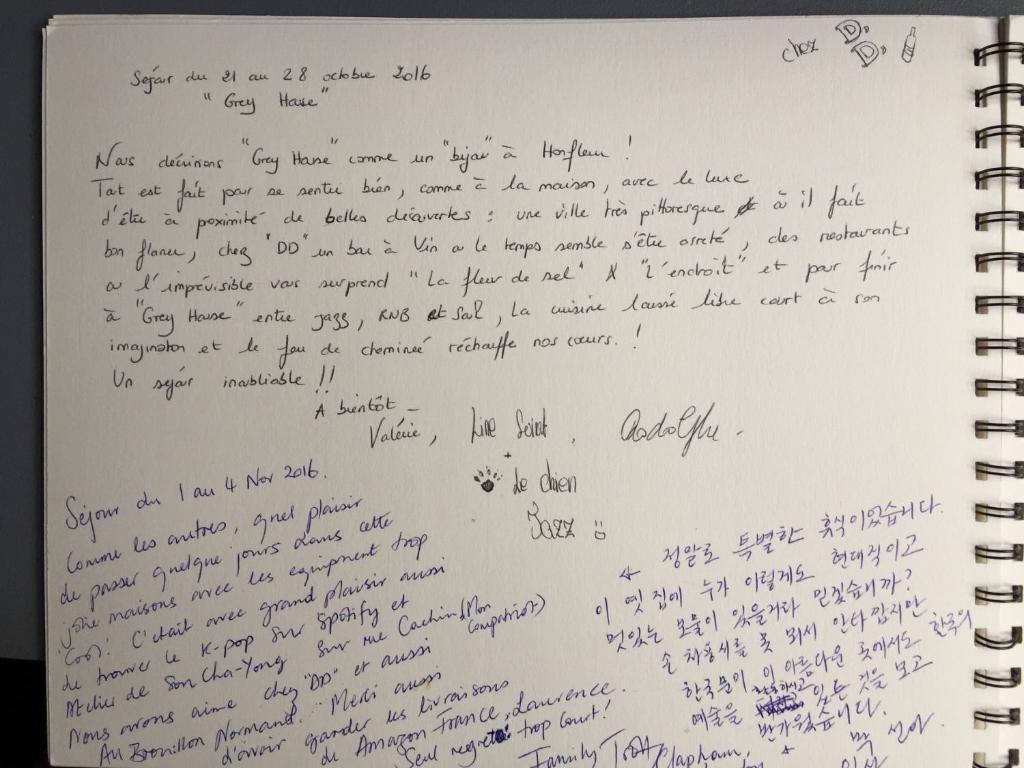 chez D.D.
Séjour du 21 au 28 octobre 2016
"Grey House"
Nous décrirons "Grey House" comme un "bijou" à Honfleur !
Tout est fait pour se sentir bien, comme à la maison, avec le luxe
d'être à poximité de belles découvertes : une ville très pittoresque où il fait
bon flaner, chez "DD" un bar à Vin où le temps semble s'être arreté, des restaurants
où l'imprévisible vous surprend "La fleur de sel" & "L'endroit" et pour finir
à "Grey House" entre jazz, RNB et Soul, La cuisine laisse libre court à son
imagination et le feu de cheminée réchauffe nos cœurs. !
Un séjour inoubliable !!
A bientôt _
Valérie,
+
Le chien
Jazz
Séjour du 1 au 4 Nov 2016.
Comme les autres, quel plaisir
de passer quelque jours dans cette
jolie maisons avec les equipment trop
Cool! C'etait avec grand plaisir aussi
de trouver le K-pop sur Spotify et
Atelier de Son Cha-Yong sur rue Cachin (Mon compatriot)
Nous avons aime chez "DD" et aussi
Au Bouillon Normand. Merci aussi
d'avoir grander les livraisons
de Amazon France, Laurence.
Seul regret trop Court!
Family
정말로 특별한 휴식이었습니다.
이 옛 집에 누가 이렇게도 현대적이고
멋있는 보물이 있을거라 믿겠습니까?
손차용씨를 못 봐서 안타깝지만
한국분이 이 아름다운 곳에서도 한국의
예술을 있는 것을 보고
반가웠습니다.